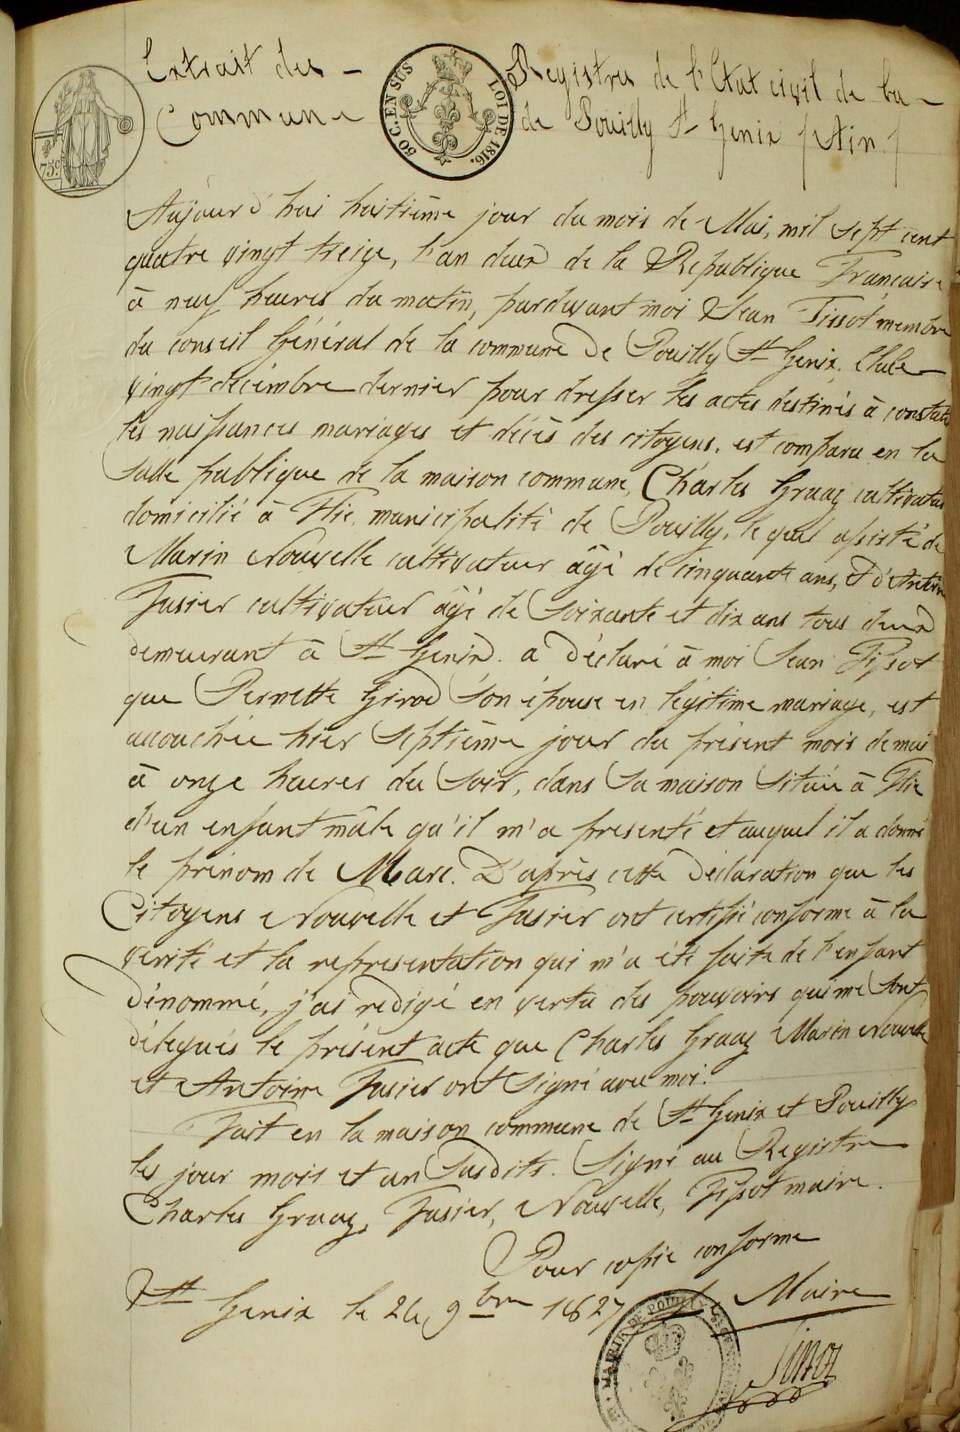 Extrait des – Registres de l'Etat civil de la –
Commune de Pouilly St Genix (Ain.)
50 C. EN SUS
LOI DE 1816.
75c
Aujourd'hui huitième jour du mois de Mai, mil sept cent
quatre vingt treize, l'an deux de la République Française
à neuf heures du matin, pardevant moi Jean Tissot membre
du conseil Général de la commune de Pouilly St Genix. Elu le
vingt décembre dernier pour dresser les actes destinés à constater
les naissances mariages et décès des citoyens. est comparu en la
Salle publique de la maison commune, Charles Graaz cultivateur
domicilié à Flie municipalité de Pouilly, le quel assisté de
Marin Nouvelle cultivateur âgé de cinquante ans, et d'Antoine
Fusier cultivateur âgé de Soixante et dix ans tous deux
demeurant à St Genix. a déclaré à moi Jean Tissot
que Pernette Girod Son épouse en légitime mariage, est
accouchée hier Septième jour du présent mois de mai
à onze heures du Soir, dans Sa maison Située à Flie
d'un enfant mâle qu'il m'a présenté et auquel il a donné
le prénom de Marc. D'après cette déclaration que les
Citoyens Nouvelle et Fusier ont certifié conforme à la
vérité et la représentation qui m'a été faite de l'enfant
dénommé, j'ai redigé en vertu des pouvoirs qui me Sont
délegués le présent acte que Charles Graaz Marin Nouvelle
et Antoine Fusier ont Signé avec moi.
Fait en la maison commune de St Genix et Pouilly
les jour mois et an Susdits. Signé au Registre
Charles Graaz, Fusier, Nouvelle, Tissot maire.
Pour copie conforme
St Genix le 24 9bre 1827
Maire
MAIRIE DE POUILLY ST GENIX